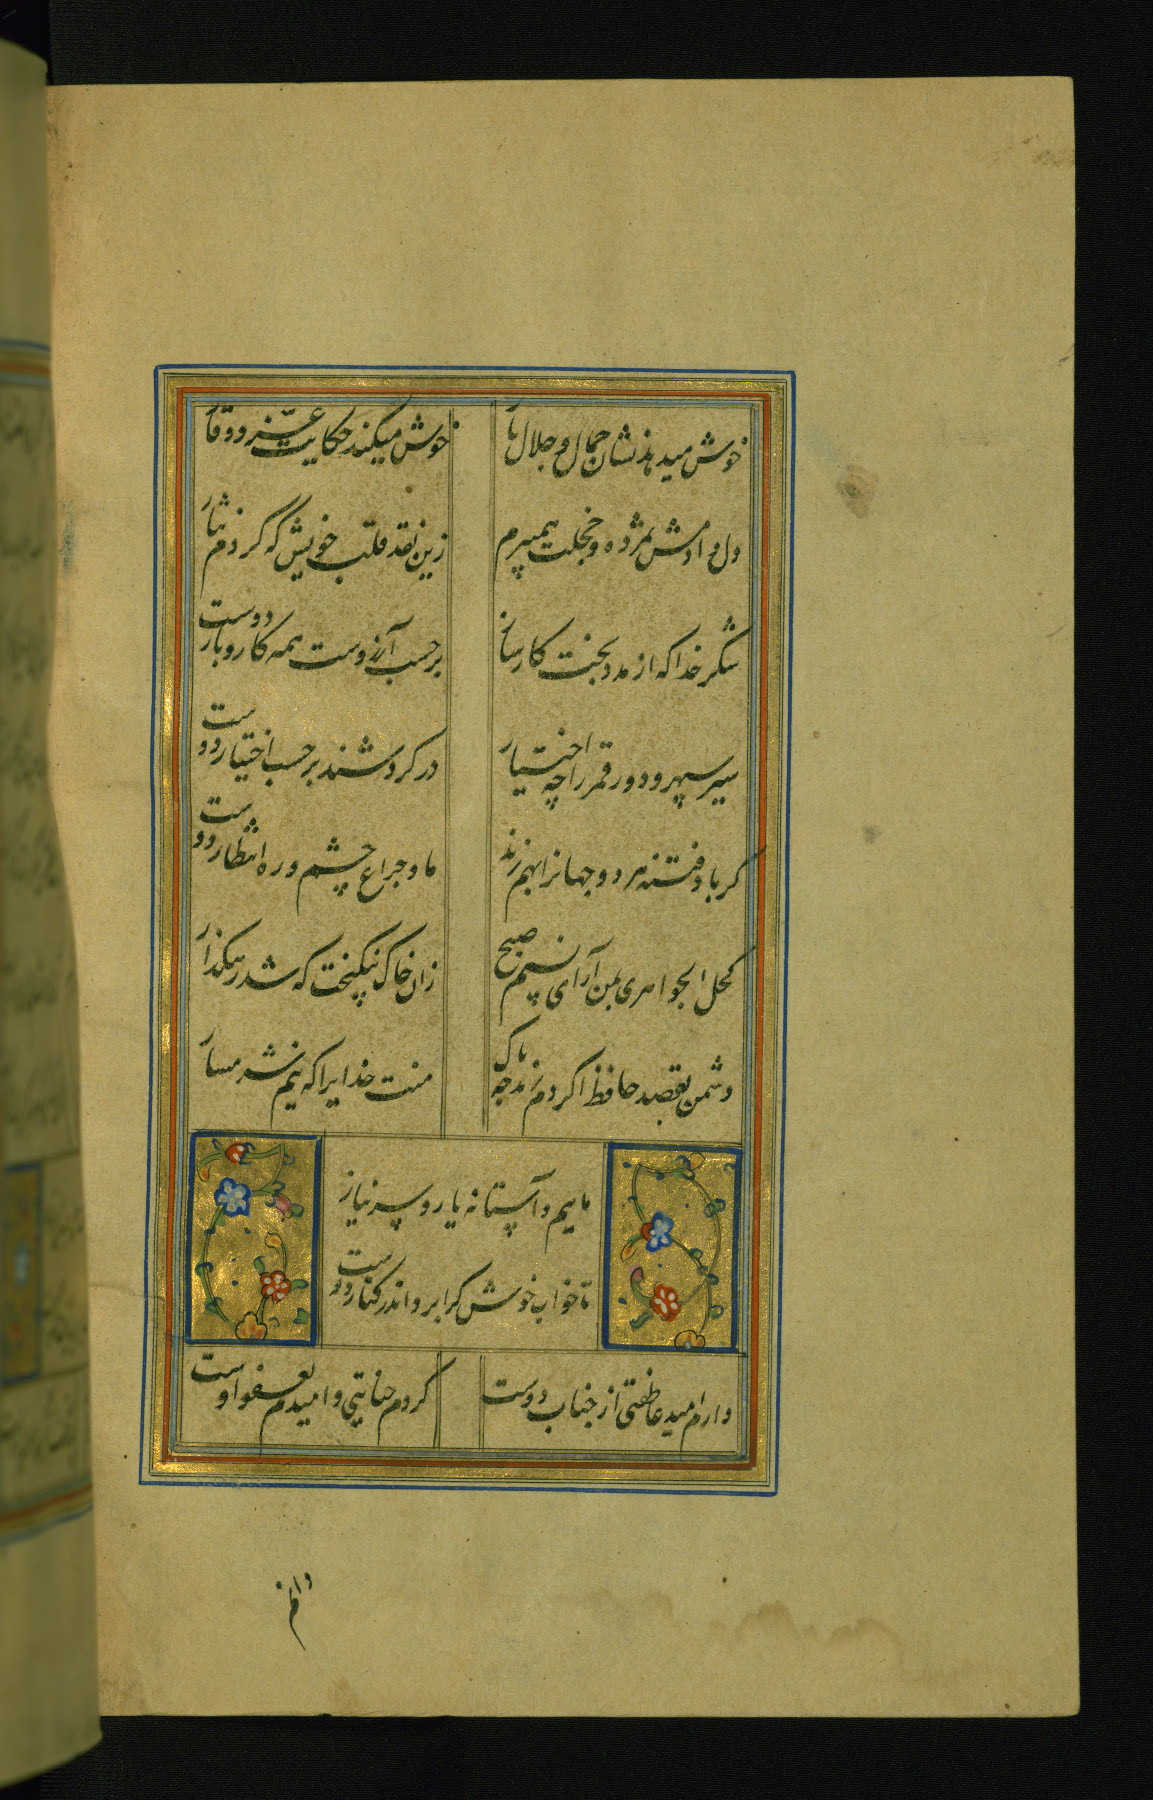 خوش میدهد نشان جمال و جلال یار خوش میکند حکایت عز و وقار
دل دادمش بمژده و خجلت همیبرم زین نقد قلب خویش که کردم نثار
شکر خدا که از مدد بخت کارساز بر حسب آرزوست همه کار و بار دوست
سیر سپهر و دور قمر را چه اختیار در گردشند بر حسب اختیار دوست
گر باد فتنه هر دو جهانرا بهم زند ما و چراغ چشم و ره انتظار دوست
کحل الجواهری بمن آر ای نسیم صبح زان خاک نیکبخت که شد رهگذار
دشمن بقصد حافظ اگر دم زند چه باک منت خدایرا که نیم شرمسار
ماییم و آستانه یار و سر نیاز
تا خواب خوش کرا برد اندر کنار دوست
دارم امید عاطفتی از جناب دوست کردم جنایتی و امیدم بعفو اوست
دانم